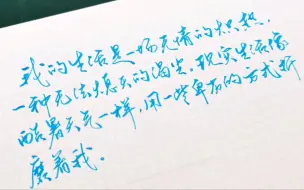 我的生活是一场无情的炽热，
一种无法熄灭的渴望。现实生活像
酷暑天气一样，用一些卑屑的方式折
磨着我。